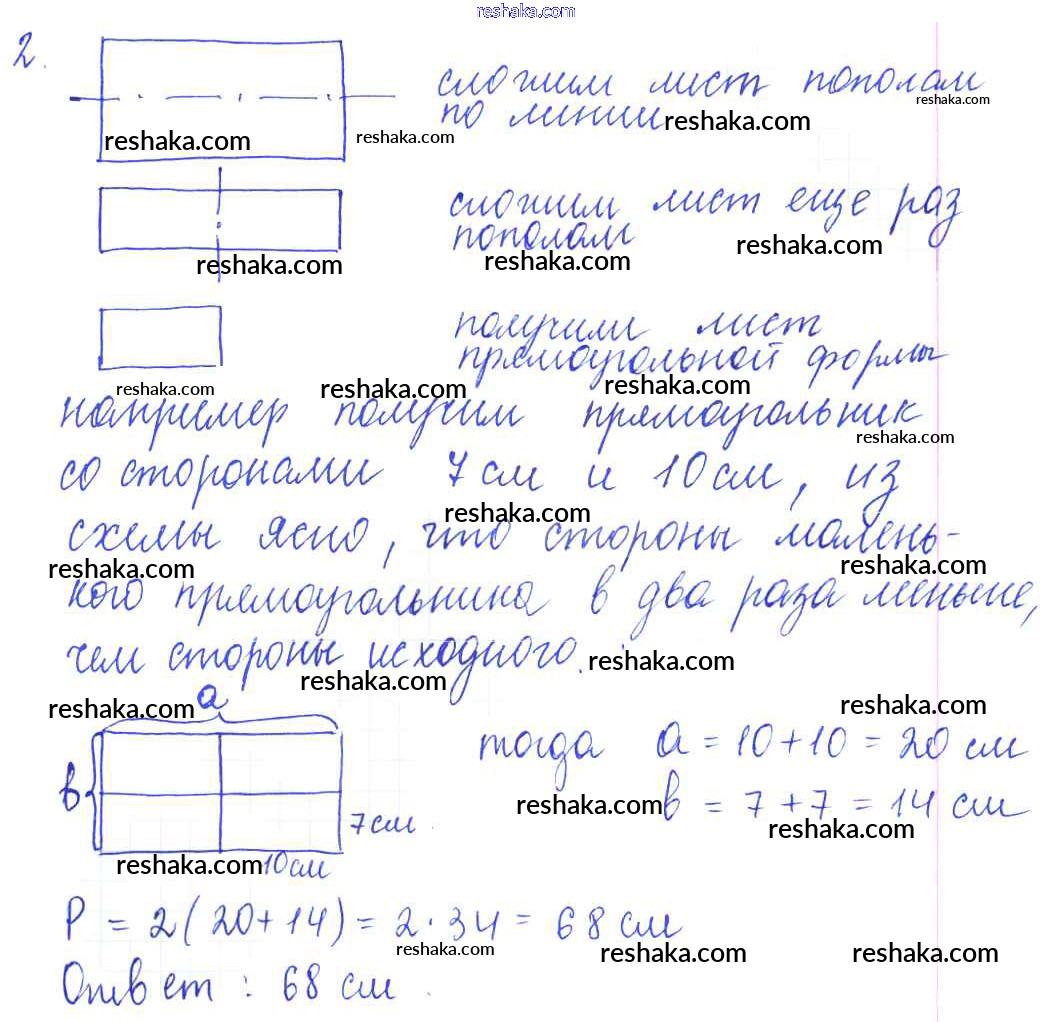 reshaka.com
2.
сложим лист пополам
reshaka.com
по линии reshaka.com
reshaka.com reshaka.com
сложим лист еще раз
пополам reshaka.com
reshaka.com reshaka.com
получим лист
прямоугольной формы
reshaka.com reshaka.com reshaka.com
например получим прямоугольник
reshaka.com
со сторонами 7 см и 10 см, из
reshaka.com
схемы ясно, что стороны малень-
reshaka.com reshaka.com
кого прямоугольника в два раза меньше,
чем стороны исходного.
reshaka.com
reshaka.com
reshaka.com a reshaka.com
тогда a = 10 + 10 = 20 см
в reshaka.com в = 7 + 7 = 14 см
7 см reshaka.com
reshaka.com 10 см
P = 2 ( 20 + 14 ) = 2 · 34 = 68 см
reshaka.com reshaka.com reshaka.com
Ответ : 68 см.